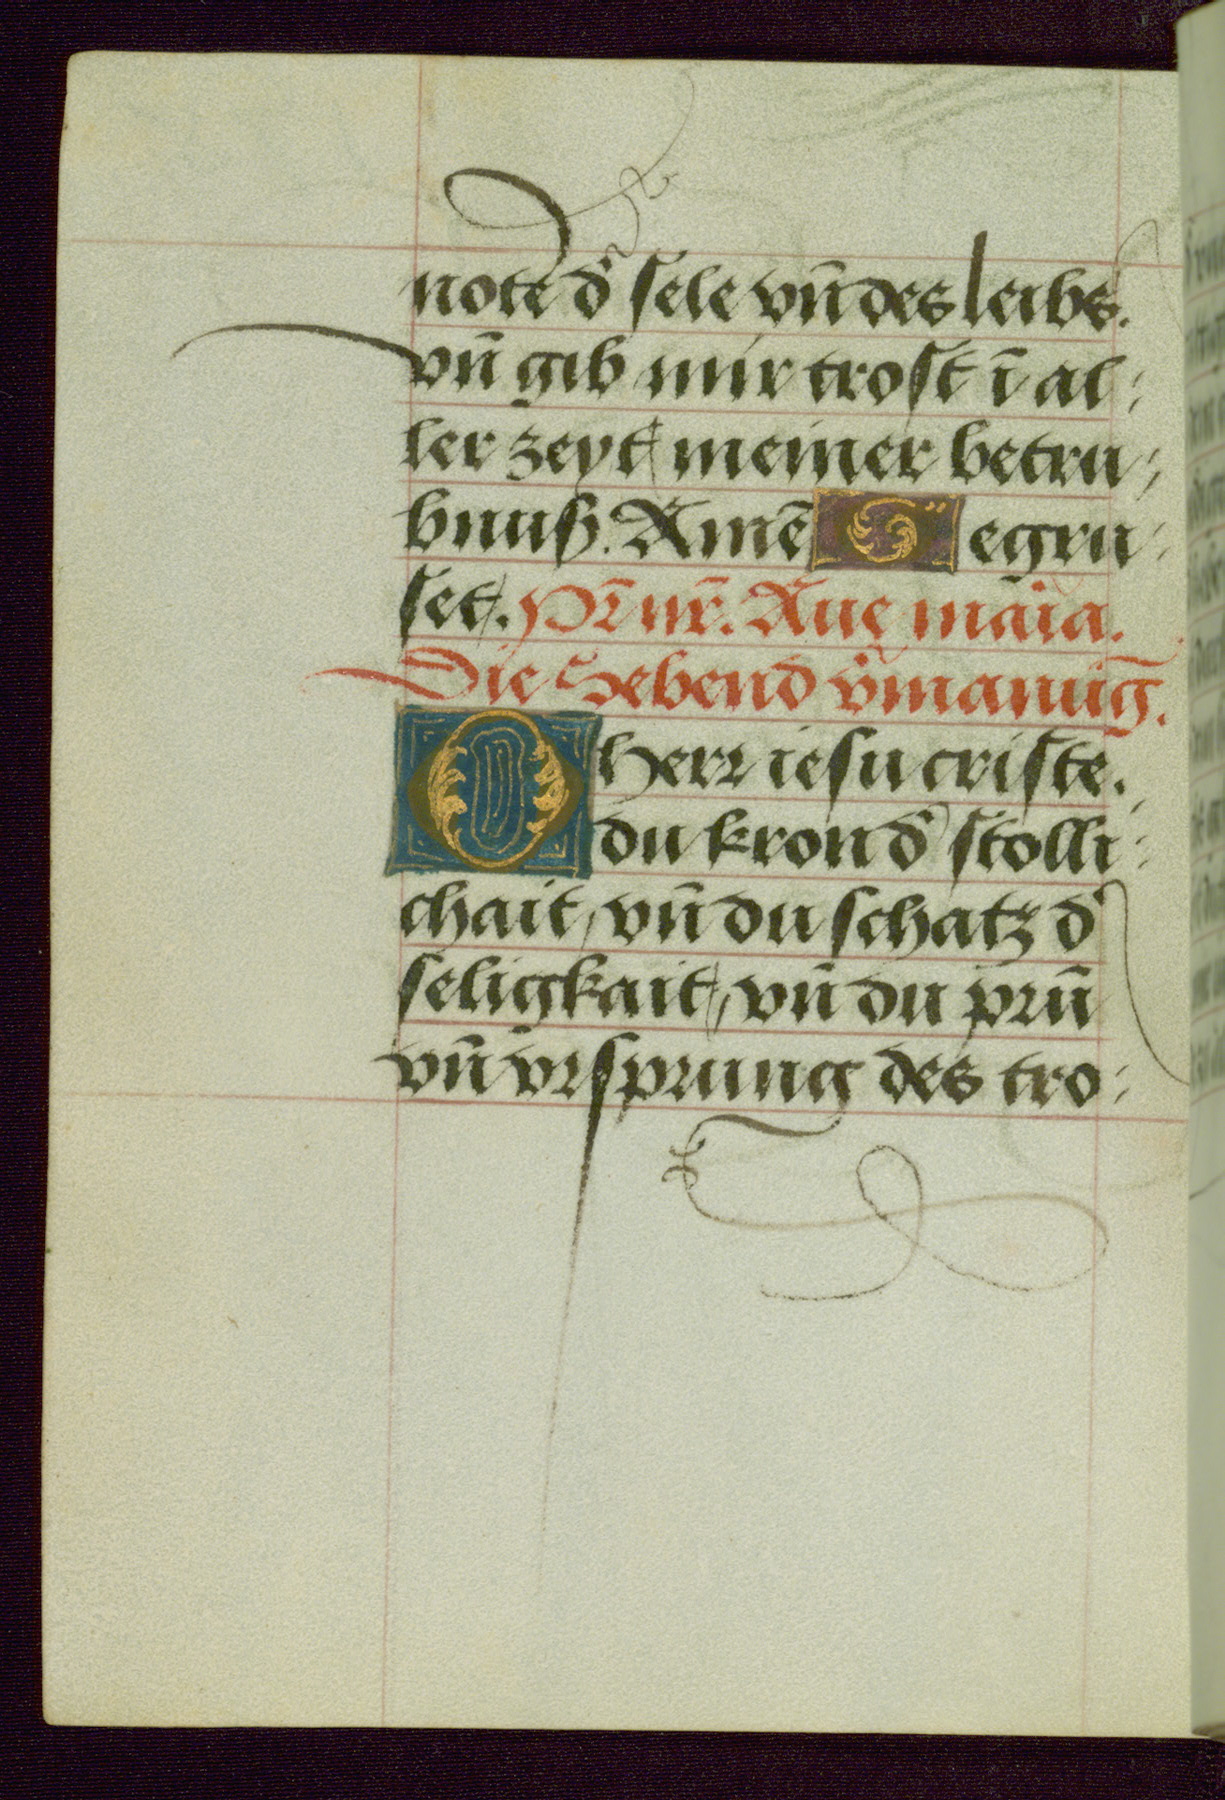 note d̛ sele vn̄ des leibs.
vn̄ gib mir trost ī al:
ler zeyt meiner betru:
bnuß. Amē Gegru:
set. Pr̄ nr̄. Aue mā̄ia.
Die Sebend v̛manūg.
O herr iesu criste.
du kron d̛ frolli:
chait, vn̄ du schatz d̛
seligkait, vn̄ du prū
vn̄ vrsprung des tro: